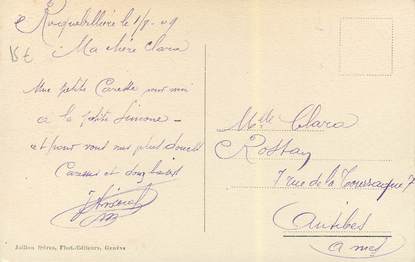 Roquebillière le 1/8 - 09
15 £
Ma chère Clara
Une petite Caresse pour moi
à la petite Simone -
et pour vous mes plus doucell
Caresses et doux baisers
Mlle Clara
Rostan
7 rue de la Tourraque 7
Antibes
a. m.
Jullien frères, Phot.-Editeurs, Genève